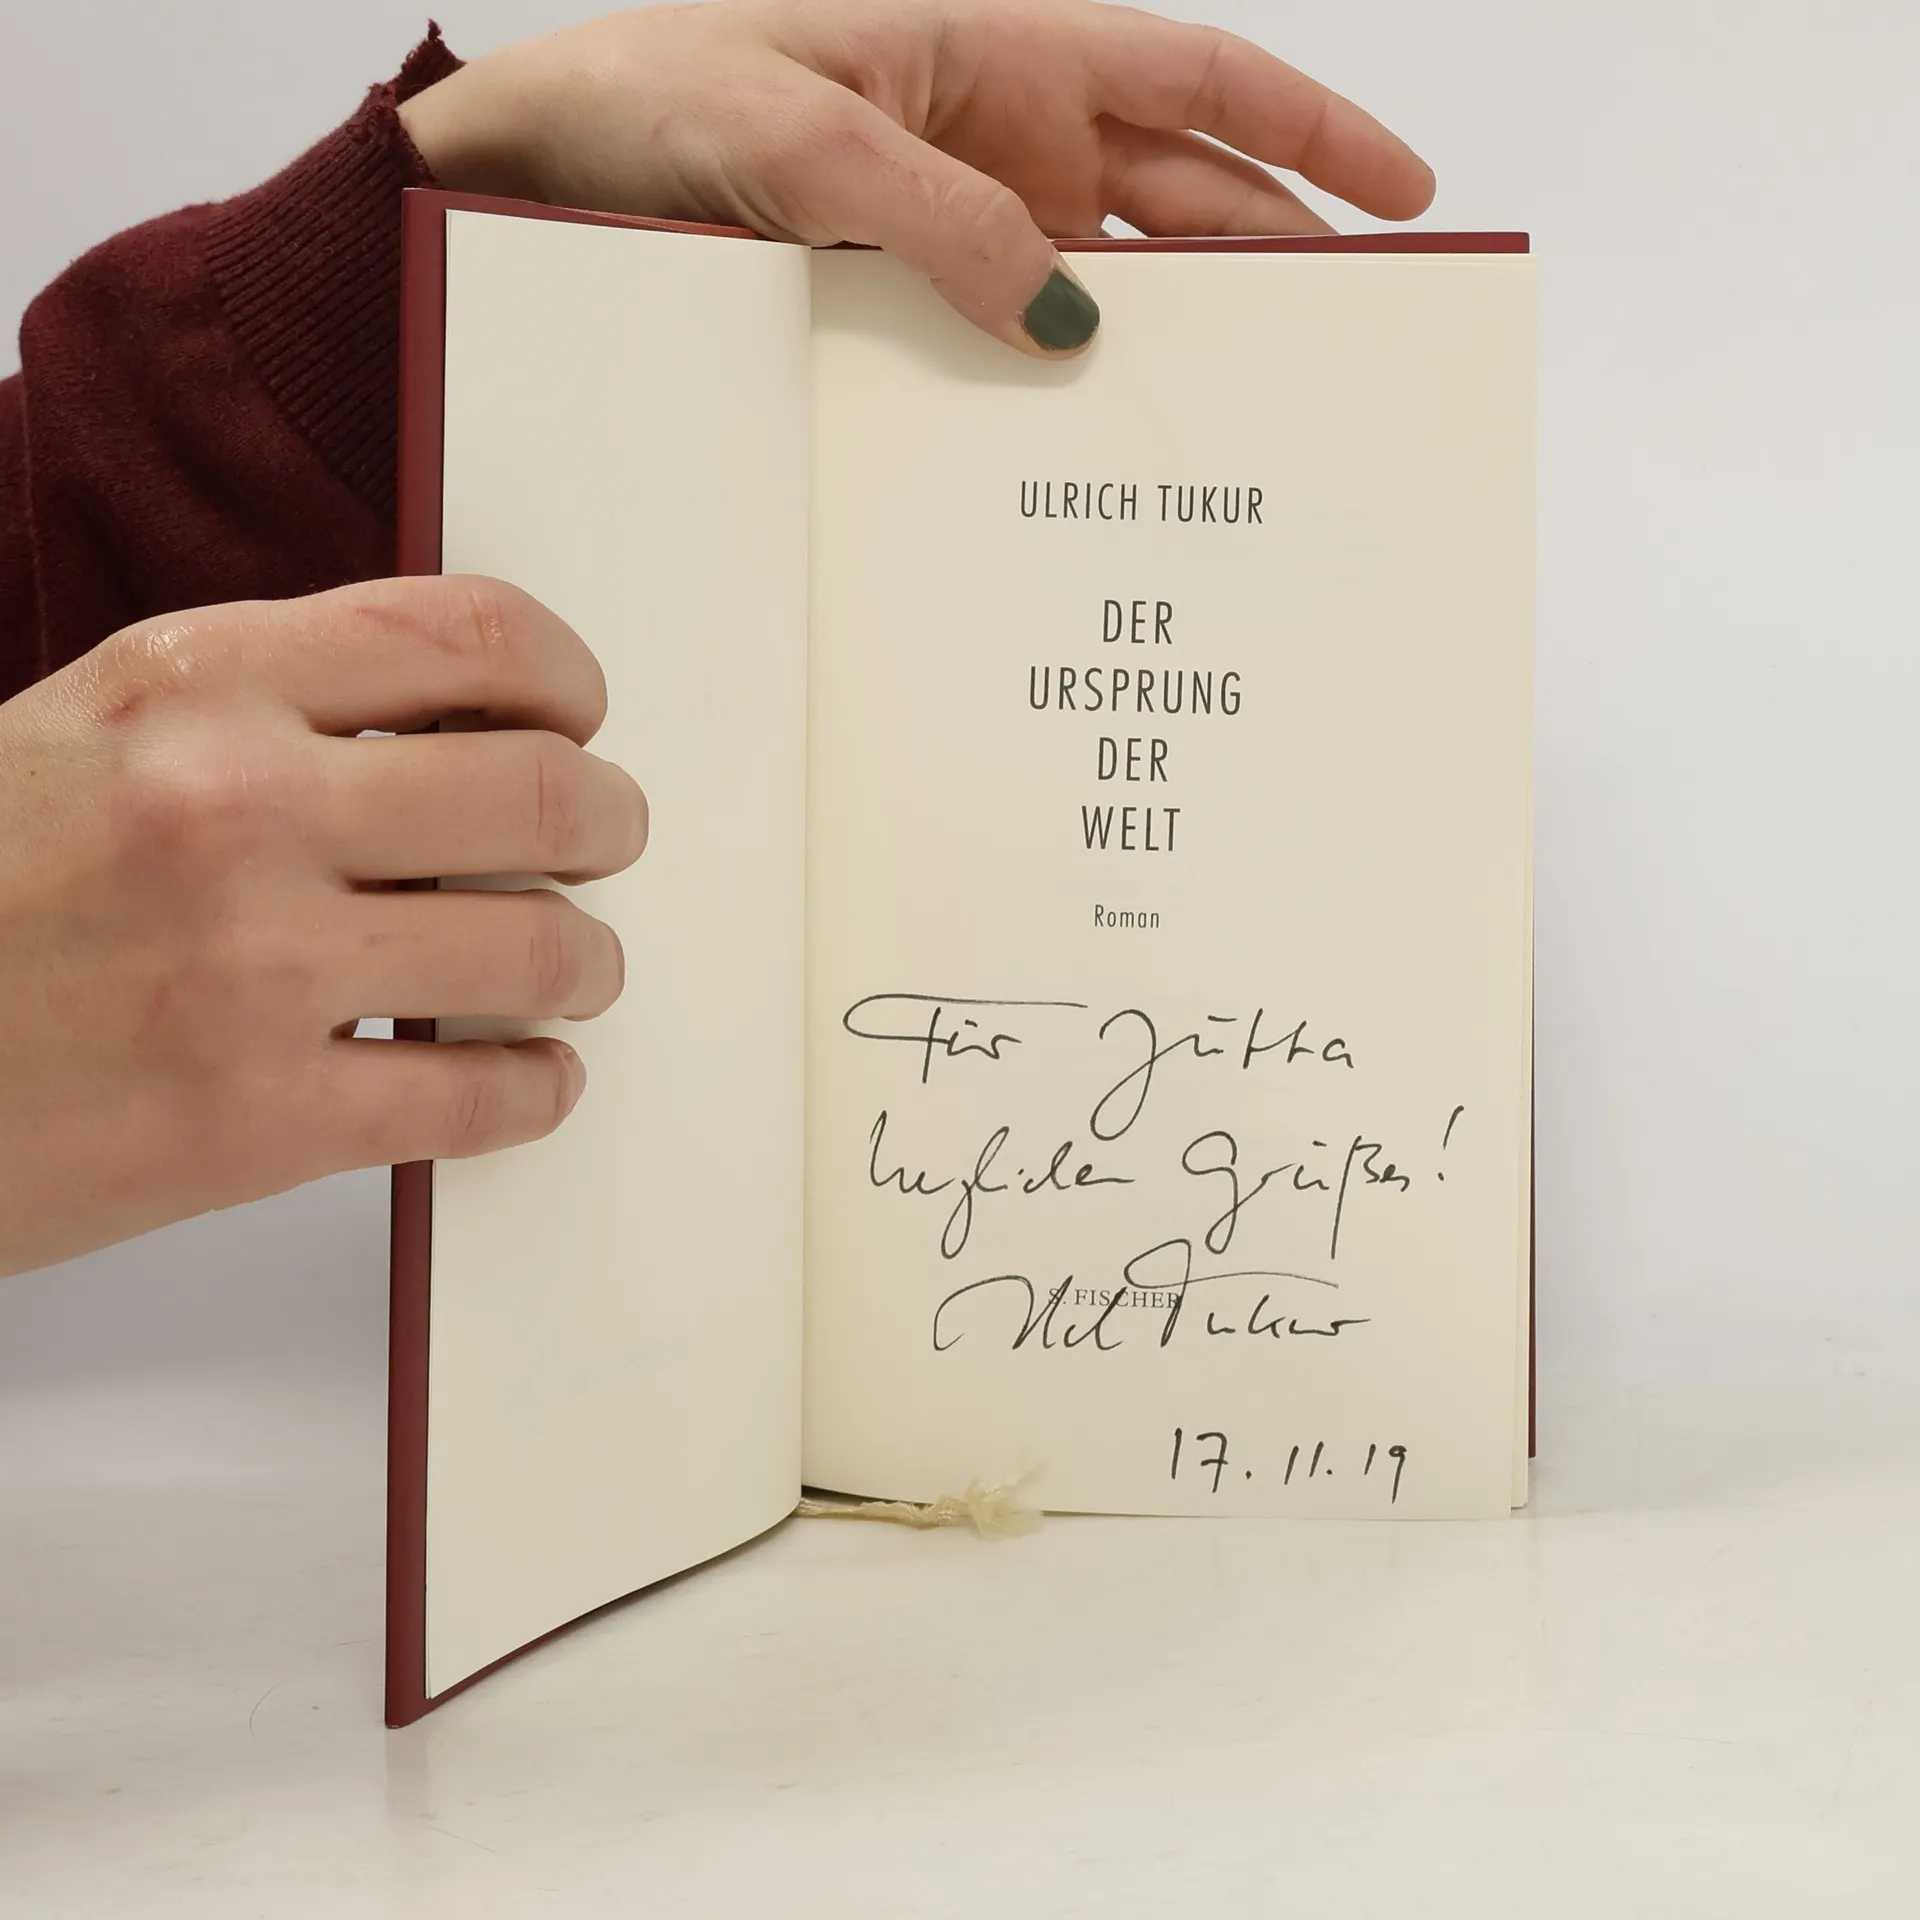 ULRICH TUKUR
DER
URSPRUNG
DER
WELT
Roman
Für Jutta
herzlichen Grüßen!
S. FISCHER
Ulrich Tukur
17.11.19